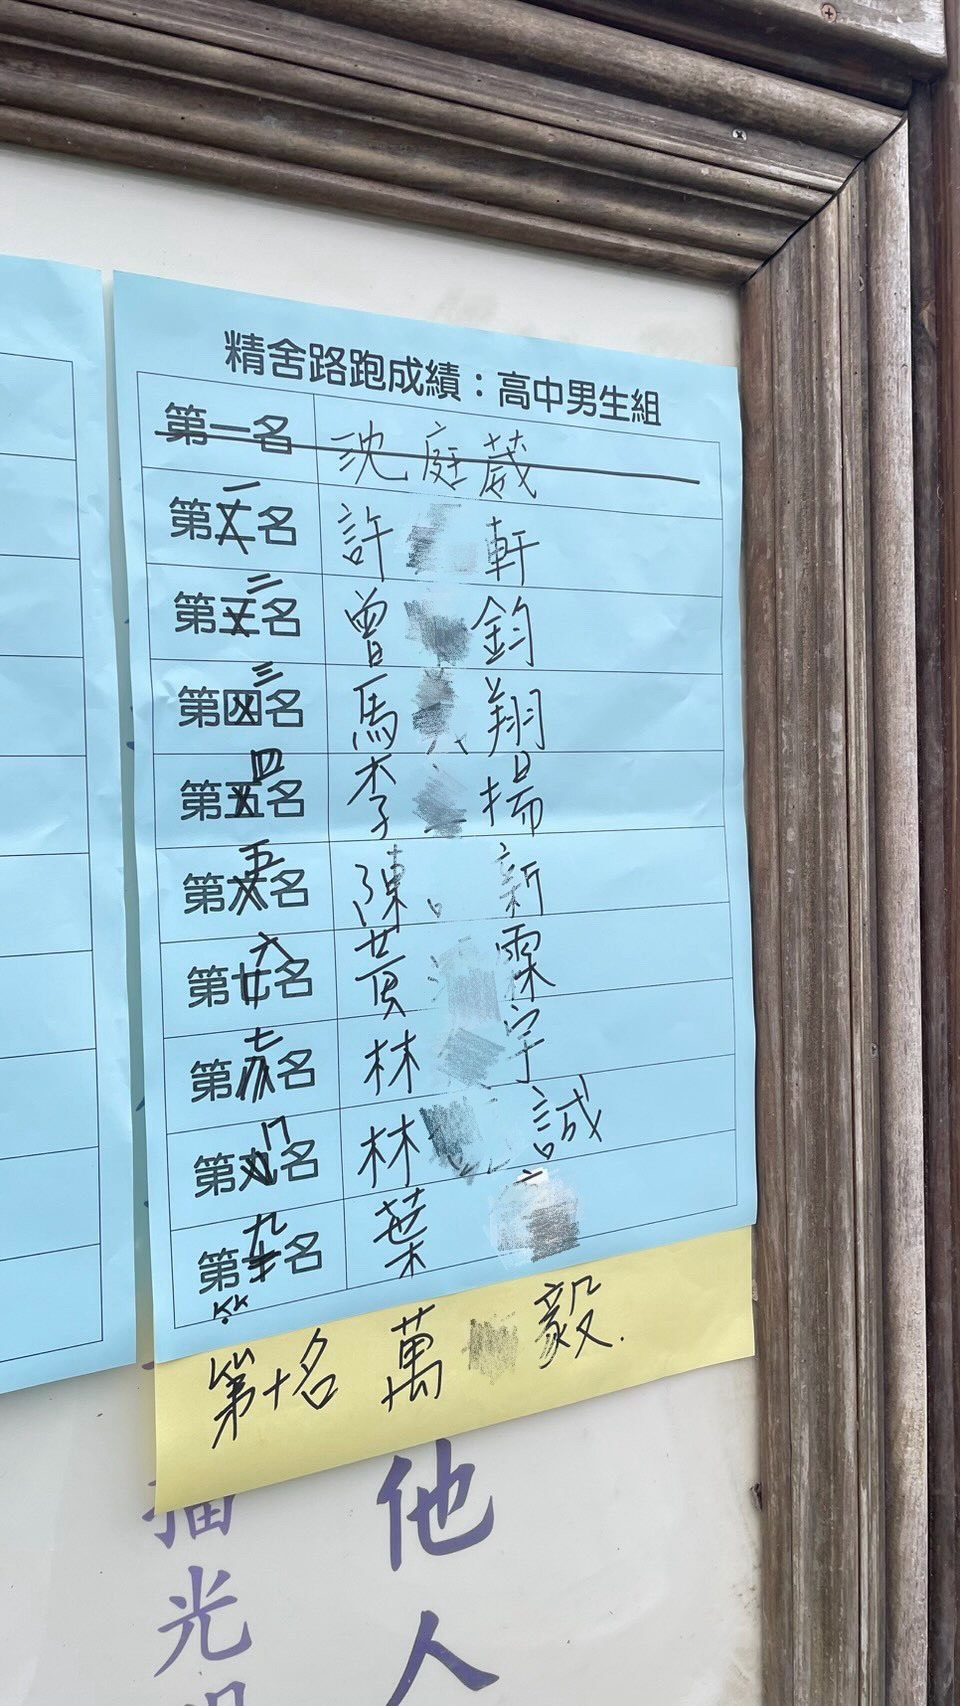 精舍路跑成績：高中男生組
第一名 沈庭葳
第一名 許 軒
第二名 曾 鈞
第三名 馬 翔
第四名 李 揚
第五名 陳 新
第六名 黃 霖
第七名 林 宇
第八名 林 誠
第九名 葉
第十名 萬 毅.
他
人
播
光